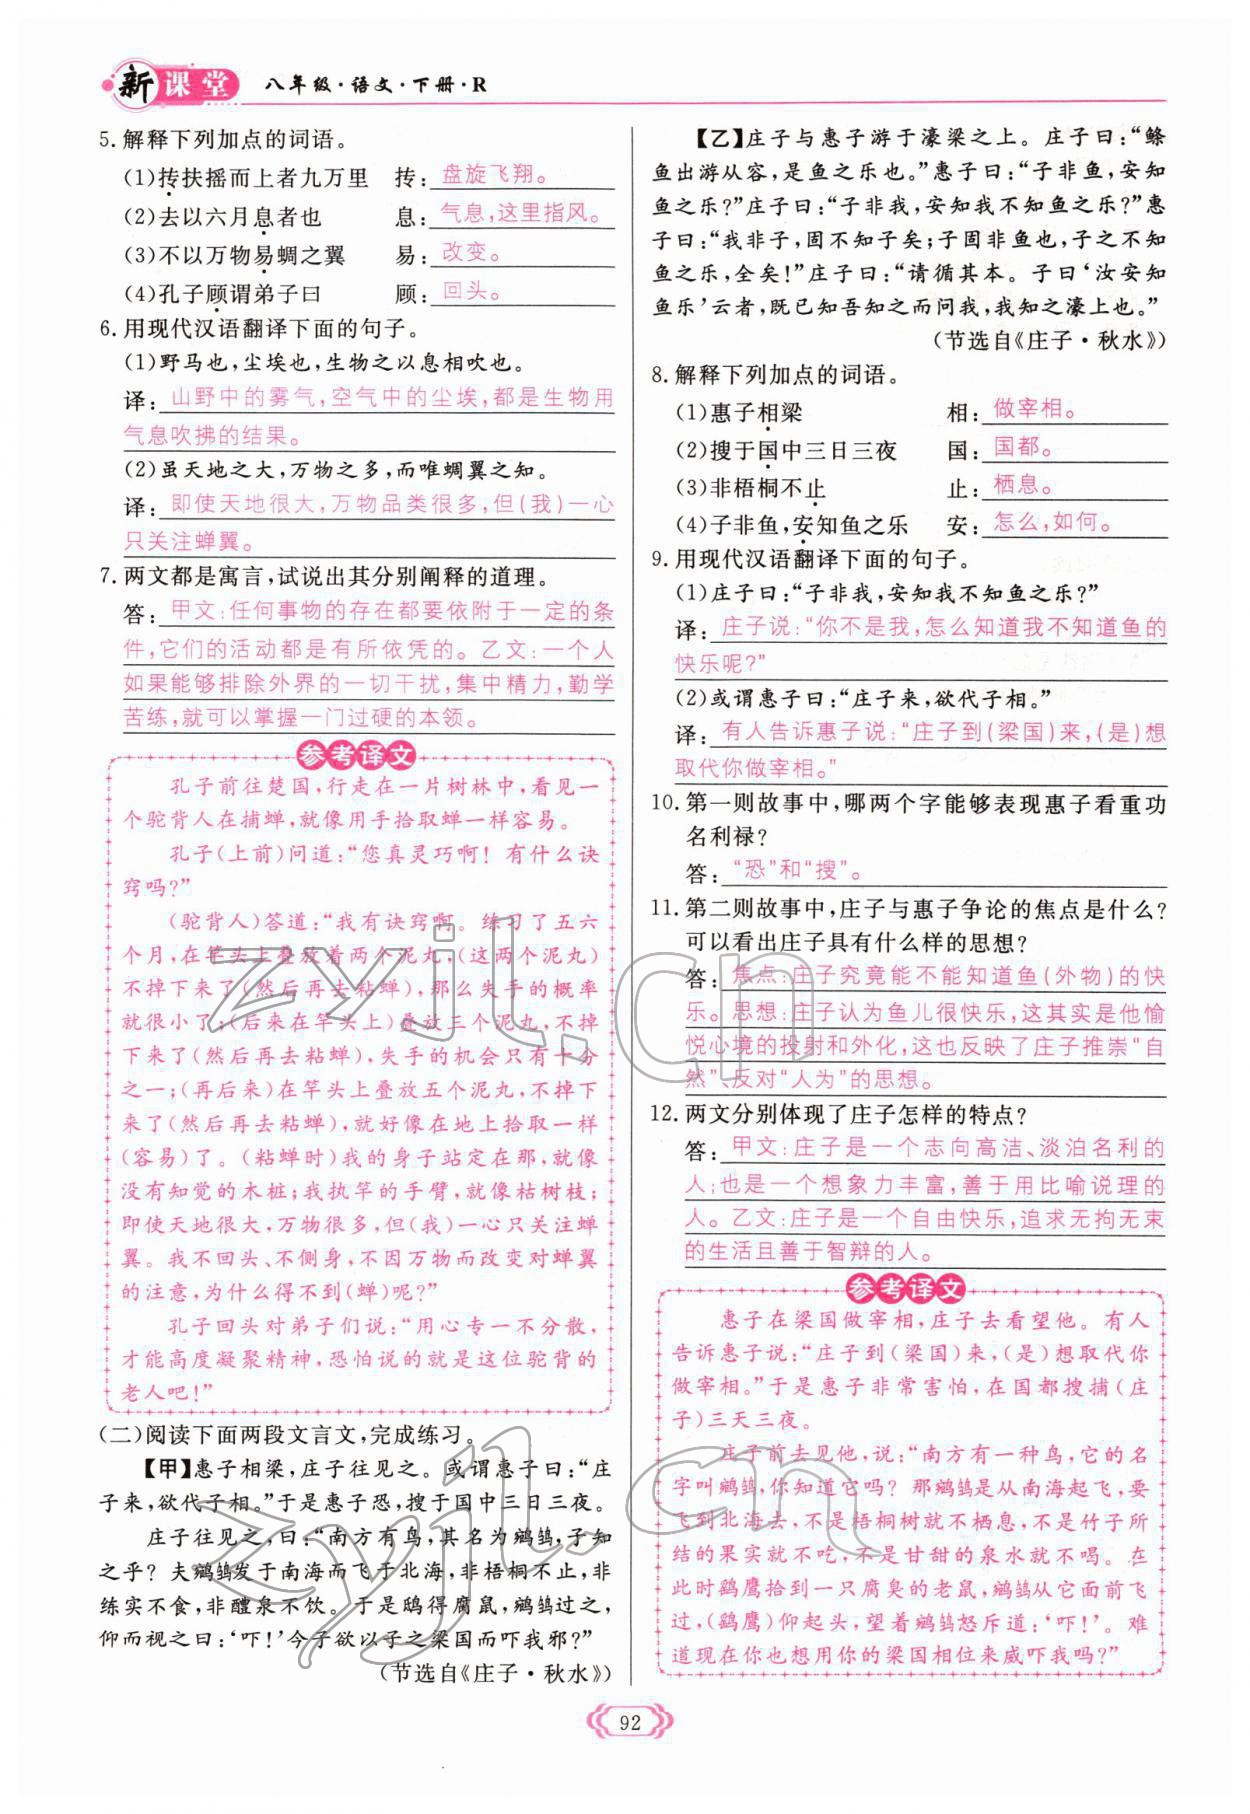 新课堂 八年级·语文·下册·R
5. 解释下列加点的词语。
(1)抟扶摇而上者九万里 抟：盘旋飞翔。
(2)去以六月息者也 息：气息，这里指风。
(3)不以万物易蜩之翼 易：改变。
(4)孔子顾谓弟子曰 顾：回头。
6. 用现代汉语翻译下面的句子。
(1)野马也，尘埃也，生物之以息相吹也。
译：山野中的雾气，空气中的尘埃，都是生物用
气息吹拂的结果。
(2)虽天地之大，万物之多，而唯蜩翼之知。
译：即使天地很大，万物品类很多，但(我)一心
只关注蝉翼。
7. 两文都是寓言，试说出其分别阐释的道理。
答：甲文：任何事物的存在都要依附于一定的条
件，它们的活动都是有所依凭的。乙文：一个人
如果能够排除外界的一切干扰，集中精力，勤学
苦练，就可以掌握一门过硬的本领。
参考译文
孔子前往楚国，行走在一片树林中，看见一
个驼背人在捕蝉，就像用手拾取蝉一样容易。
孔子(上前)问道：“您真灵巧啊！有什么诀
窍吗？”
(驼背人)答道：“我有诀窍啊。练习了五六
个月，在竿头上叠放着两个泥丸，(这两个泥丸)
不掉下来了(然后再去粘蝉)，那么失手的概率
就很小了；(后来在竿头上)叠放三个泥丸，不掉
下来了(然后再去粘蝉)，失手的机会只有十分
之一；(再后来)在竿头上叠放五个泥丸，不掉下
来了(然后再去粘蝉)，就好像在地上拾取一样
(容易)了。(粘蝉时)我的身子站定在那里，就像
没有知觉的木桩；我执竿的手臂，就像枯树枝；
即使天地很大，万物很多，但(我)一心只关注蝉
翼。我不回头、不侧身，不因万物而改变对蝉翼
的注意，为什么得不到(蝉)呢？”
孔子回头对弟子们说：“用心专一不分散，
才能高度凝聚精神，恐怕说的就是这位驼背的
老人吧！”
(二)阅读下面两段文言文，完成练习。
【甲】惠子相梁，庄子往见之。或谓惠子曰：“庄
子来，欲代子相。”于是惠子恐，搜于国中三日三夜。
庄子往见之，曰：“南方有鸟，其名为鹓鶵，子知
之乎？夫鹓鶵发于南海而飞于北海，非梧桐不止，非
练实不食，非醴泉不饮。于是鸱得腐鼠，鹓鶵过之，
仰而视之曰：‘吓！’今子欲以子之梁国而吓我邪？”
(节选自《庄子·秋水》)
【乙】庄子与惠子游于濠梁之上。庄子曰：“鲦
鱼出游从容，是鱼之乐也。”惠子曰：“子非鱼，安知
鱼之乐？”庄子曰：“子非我，安知我不知鱼之乐？”惠
子曰：“我非子，固不知子矣；子固非鱼也，子之不知
鱼之乐，全矣！”庄子曰：“请循其本。子曰‘汝安知
鱼乐’云者，既已知吾知之而问我，我知之濠上也。”
(节选自《庄子·秋水》)
8. 解释下列加点的词语。
(1)惠子相梁 相：做宰相。
(2)搜于国中三日三夜 国：国都。
(3)非梧桐不止 止：栖息。
(4)子非鱼，安知鱼之乐 安：怎么，如何。
9. 用现代汉语翻译下面的句子。
(1)庄子曰：“子非我，安知我不知鱼之乐？”
译：庄子说：“你不是我，怎么知道我不知道鱼的
快乐呢？”
(2)或谓惠子曰：“庄子来，欲代子相。”
译：有人告诉惠子说：“庄子到(梁国)来，(是)想
取代你做宰相。”
10. 第一则故事中，哪两个字能够表现惠子看重功
名利禄？
答：“恐”和“搜”。
11. 第二则故事中，庄子与惠子争论的焦点是什么？
可以看出庄子具有什么样的思想？
答：焦点：庄子究竟能不能知道鱼(外物)的快
乐。思想：庄子认为鱼儿很快乐，这其实是他愉
悦心境的投射和外化，这也反映了庄子推崇“自
然”、反对“人为”的思想。
12. 两文分别体现了庄子怎样的特点？
答：甲文：庄子是一个志向高洁、淡泊名利的
人；也是一个想象力丰富，善于用比喻说理的
人。乙文：庄子是一个自由快乐，追求无拘无束
的生活且善于智辩的人。
参考译文
惠子在梁国做宰相，庄子去看望他。有人
告诉惠子说：“庄子到(梁国)来，(是)想取代你
做宰相。”于是惠子非常害怕，在国都搜捕(庄
子)三天三夜。
庄子前去见他，说：“南方有一种鸟，它的名
字叫鹓鶵，你知道它吗？那鹓鶵从南海起飞，要
飞到北海去，不是梧桐树就不栖息，不是竹子所
结的果实就不吃，不是甘甜的泉水就不喝。在
此时鹞鹰拾到一只腐臭的老鼠，鹓鶵正好在面前飞
过，(鹞鹰)仰起头，望着鹓鶵怒斥道：‘吓！’。难
道现在你也想用你的梁国相位来威吓我吗？”
92
zyjl.cn
zyjl.cn